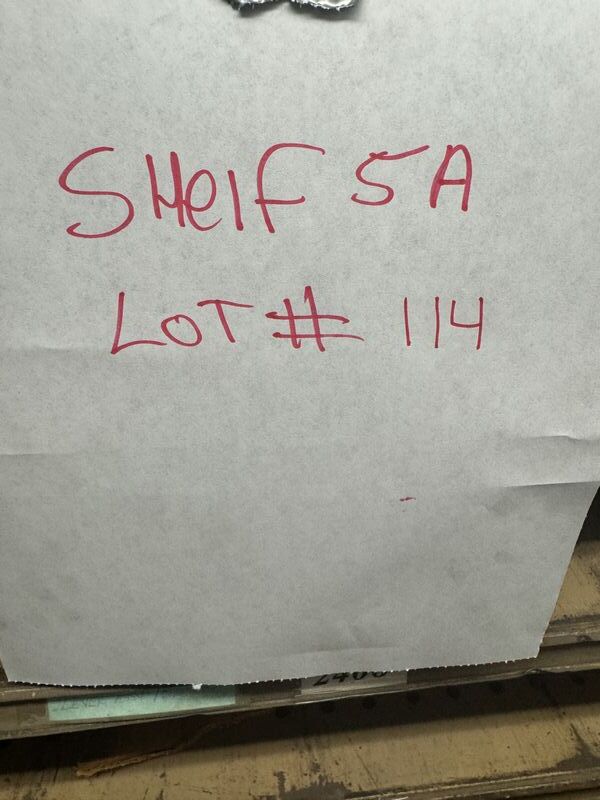 SHelF 5A
LOT # 114